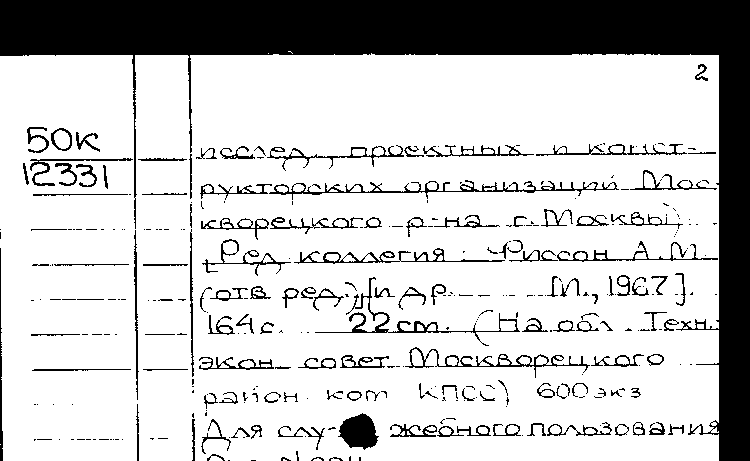 2
50К
12331
исслед., проектных и конст-
рукторских организаций Мос-
кворецкого р-на г. Москвы)
[Ред коллегия: Фиссон А.М.
(отв ред.)] [и др. М., 1967].
164с. 22cm. (На обл. Техн.-
экон совет Москворецкого
район ком КПСС) 600экз
Для слу- жебного пользования